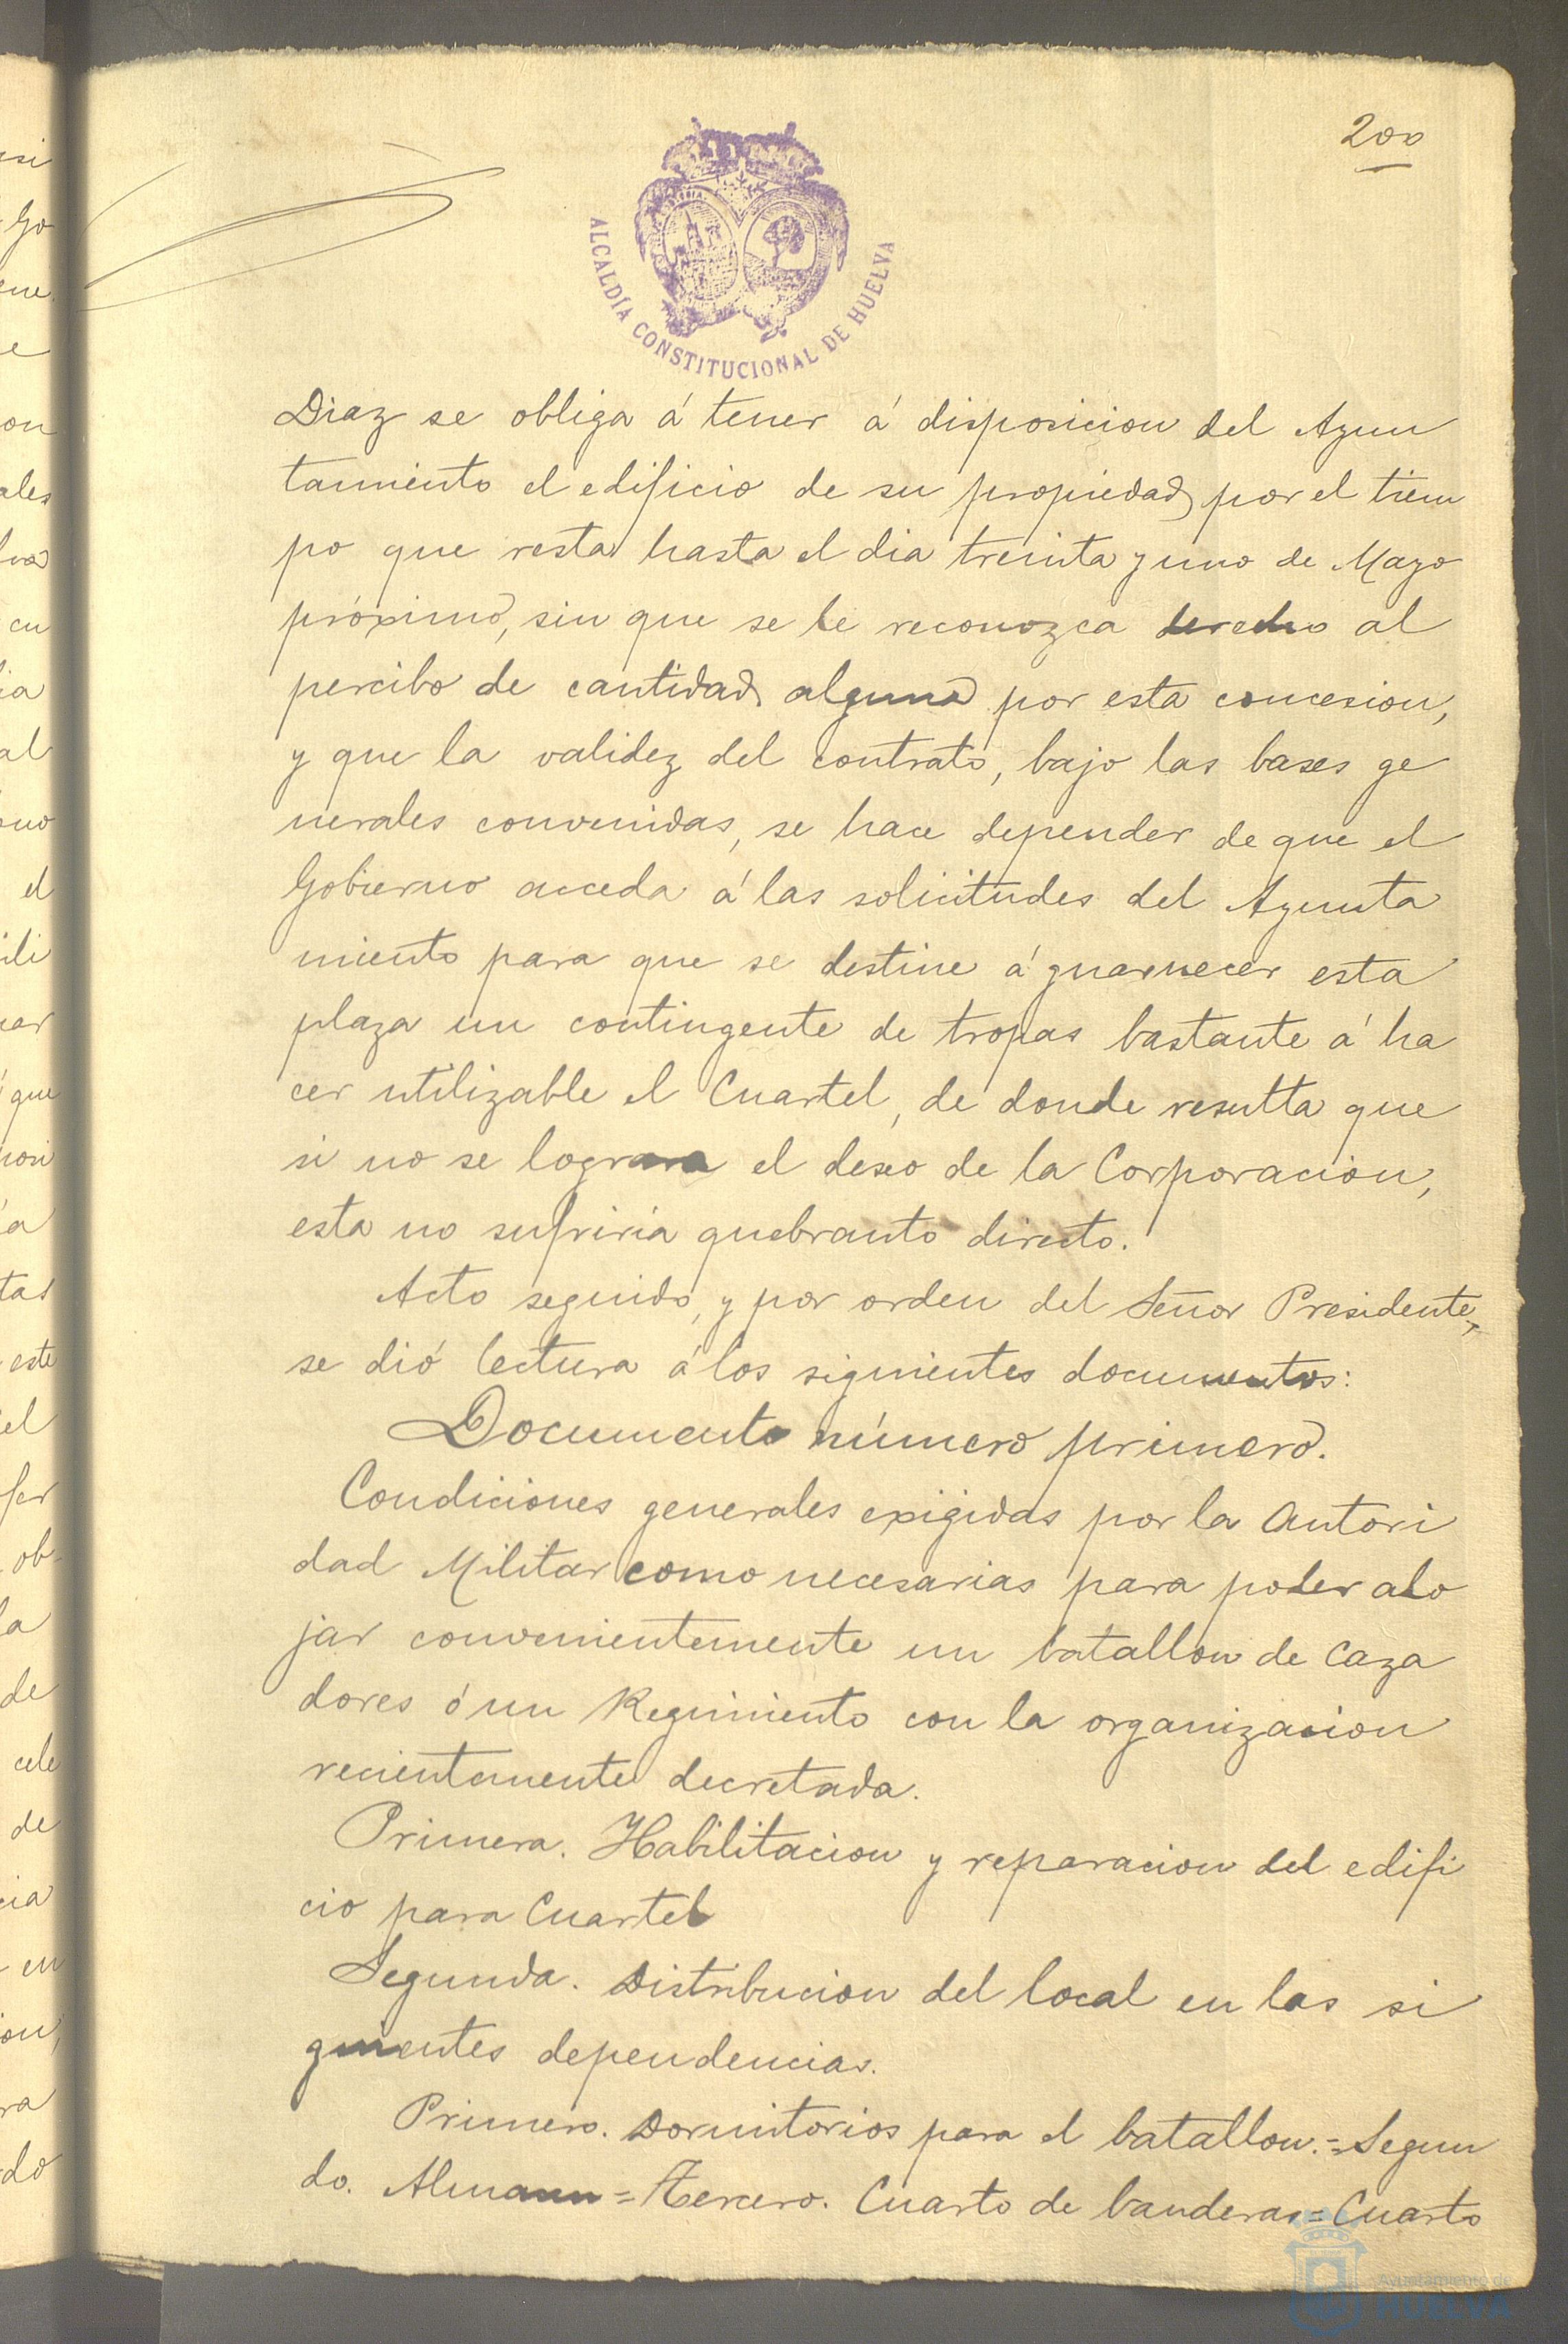 200
ALCALDÍA CONSTITUCIONAL DE HUELVA
Diaz se obliga á tener á disposicion del Ayun
tamiento el edificio de su propiedad por el tiem
po que resta hasta el dia treinta y uno de Mayo
próximo, sin que se le reconozca derecho al
percibo de cantidad alguna por esta concesion,
y que la validez del contrato, bajo las bases ge
nerales convenidas, se hace depender de que el
Gobierno acceda á las solicitudes del Ayunta
miento para que se destine á guarnecer esta
plaza un contingente de tropas bastante á ha
cer utilizable el Cuartel, de donde resulta que
si no se lograra el deseo de la Corporacion,
esta no sufriria quebranto directo.
Acto seguido, y por orden del Señor Presidente,
se dió lectura á los siguientes documentos:
Documento número primero.
Condiciones generales exigidas por la Autori
dad Militar como necesarias para poder alo
jar convenientemente un batallon de Caza
dores ó un Regimiento con la organizacion
recientemente decretada.
Primera. Habilitacion y reparacion del edifi
cio para Cuartel
Segunda. Distribucion del local en las si
guientes dependencias.
Primero. Dormitorios para el batallon.=Segun
do. =Tercero. Cuarto de banderas=Cuarto
Ayuntamiento de
HUELVA
si
Go
ene
e
on
ales
cu
ia
al
el
ili
que
a
tas
este
el
fer
ob
la
de
cele
de
cia
en
ra
do